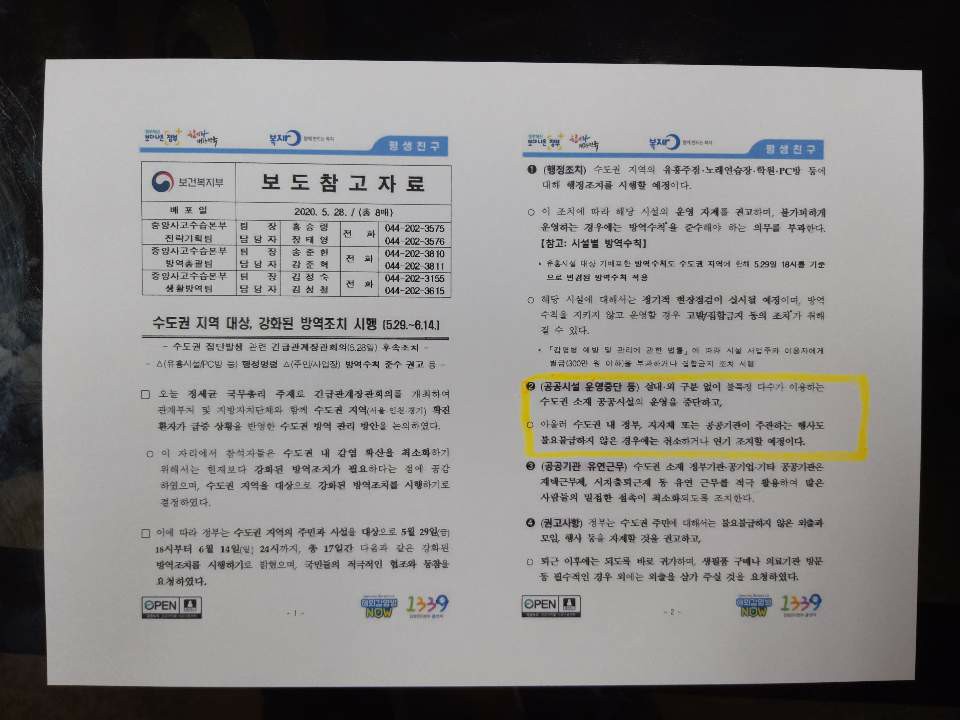 보다나은 정부
복지로
평생친구
보건복지부
보도참고자료
배포일
2020. 5. 28. / (총 8매)
중앙사고수습본부
전략기획팀
팀 장
담 당 자
홍승령
장태영
전 화
044-202-3575
044-202-3576
중앙사고수습본부
방역총괄팀
팀 장
담 당 자
송준헌
강준혁
전 화
044-202-3810
044-202-3811
중앙사고수습본부
생활방역팀
팀 장
담 당 자
김정숙
전 화
044-202-3155
044-202-3615
수도권 지역 대상, 강화된 방역조치 시행 (5.29.~6.14.)
- 수도권 집단발생 관련 긴급관계장관회의(5.28일) 후속조치 -
- △(유흥시설/PC방 등) 행정명령 △(주민/사업장) 방역수칙 준수 권고 등 -
□ 오늘 정세균 국무총리 주재로 긴급관계장관회의를 개최하여
관계부처 및 지방자치단체와 함께 수도권 지역(서울·인천·경기) 확진
환자가 급증 상황을 반영한 수도권 방역 관리 방안을 논의하였다.
○ 이 자리에서 참석자들은 수도권 내 감염 확산을 최소화하기
위해서는 현재보다 강화된 방역조치가 필요하다는 점에 공감
하였으며, 수도권 지역을 대상으로 강화된 방역조치를 시행하기로
결정하였다.
□ 이에 따라 정부는 수도권 지역의 주민과 시설을 대상으로 5월 29일(금)
18시부터 6월 14일(일) 24시까지, 총 17일간 다음과 같은 강화된
방역조치를 시행하기로 밝혔으며, 국민들의 적극적인 협조와 동참을
요청하였다.
OPEN
- 1 -
예외감염병
NOW
1339
보다나은 정부
평생친구
❶ (행정조치) 수도권 지역의 유흥주점·노래연습장·학원·PC방 등에
대해 행정조치를 시행할 예정이다.
○ 이 조치에 따라 해당 시설의 운영 자제를 권고하며, 불가피하게
운영하는 경우에는 방역수칙*을 준수해야 하는 의무를 부과한다.
【참고: 시설별 방역수칙】
* 유흥시설 대상 기배포한 방역수칙도 수도권 지역에 한해 5.29일 18시를 기준
으로 변경된 방역수칙 적용
○ 해당 시설에 대해서는 정기적 현장점검이 실시될 예정이며, 방역
수칙을 지키지 않고 운영할 경우 고발/집합금지 등의 조치*가 취해
질 수 있다.
* 「감염병 예방 및 관리에 관한 법률」에 따라 시설 사업주와 이용자에게
벌금(300만 원 이하)을 부과하거나 집합금지 조치 시행
❷ (공공시설 운영중단 등) 실내·외 구분 없이 불특정 다수가 이용하는
수도권 소재 공공시설의 운영을 중단하고,
○ 아울러 수도권 내 정부, 지자체 또는 공공기관이 주관하는 행사도
불요불급하지 않은 경우에는 취소하거나 연기 조치할 예정이다.
❸ (공공기관 유연근무) 수도권 소재 정부기관·공기업·기타 공공기관은
재택근무제, 시차출퇴근제 등 유연 근무를 적극 활용하여 많은
사람들의 밀집한 접촉이 최소화되도록 조치한다.
❹ (권고사항) 정부는 수도권 주민에 대해서는 불요불급하지 않은 외출과
모임, 행사 등을 자제할 것을 권고하고,
○ 퇴근 이후에는 되도록 바로 귀가하며, 생필품 구매나 의료기관 방문
등 필수적인 경우 외에는 외출을 삼가 주실 것을 요청하였다.
OPEN
- 2 -
NOW
1339